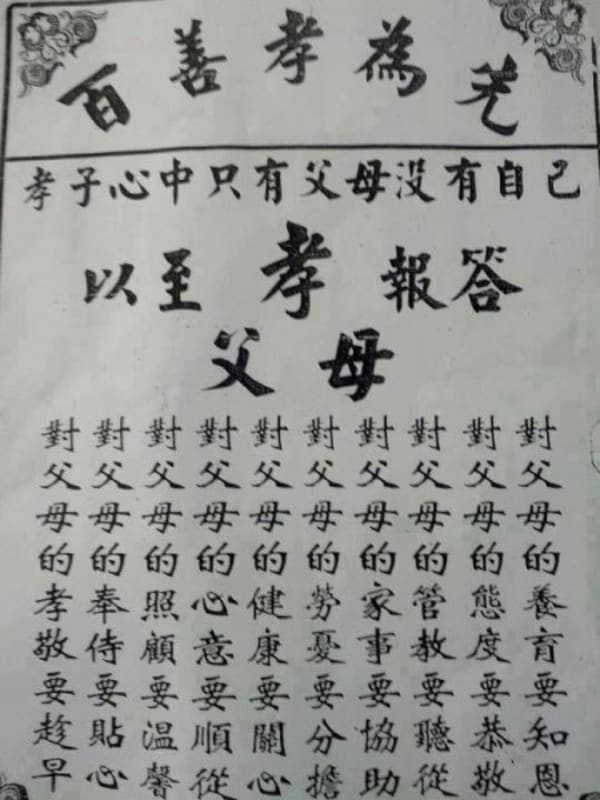 百善孝為先
孝子心中只有父母没有自己
以至孝報答
父母
對父母的養育要知恩
對父母的態度要恭敬
對父母的管教要聽從
對父母的家事要協助
對父母的勞憂要分擔
對父母的健康要關心
對父母的心意要順從
對父母的照顧要溫馨
對父母的奉侍要貼心
對父母的孝敬要趁早